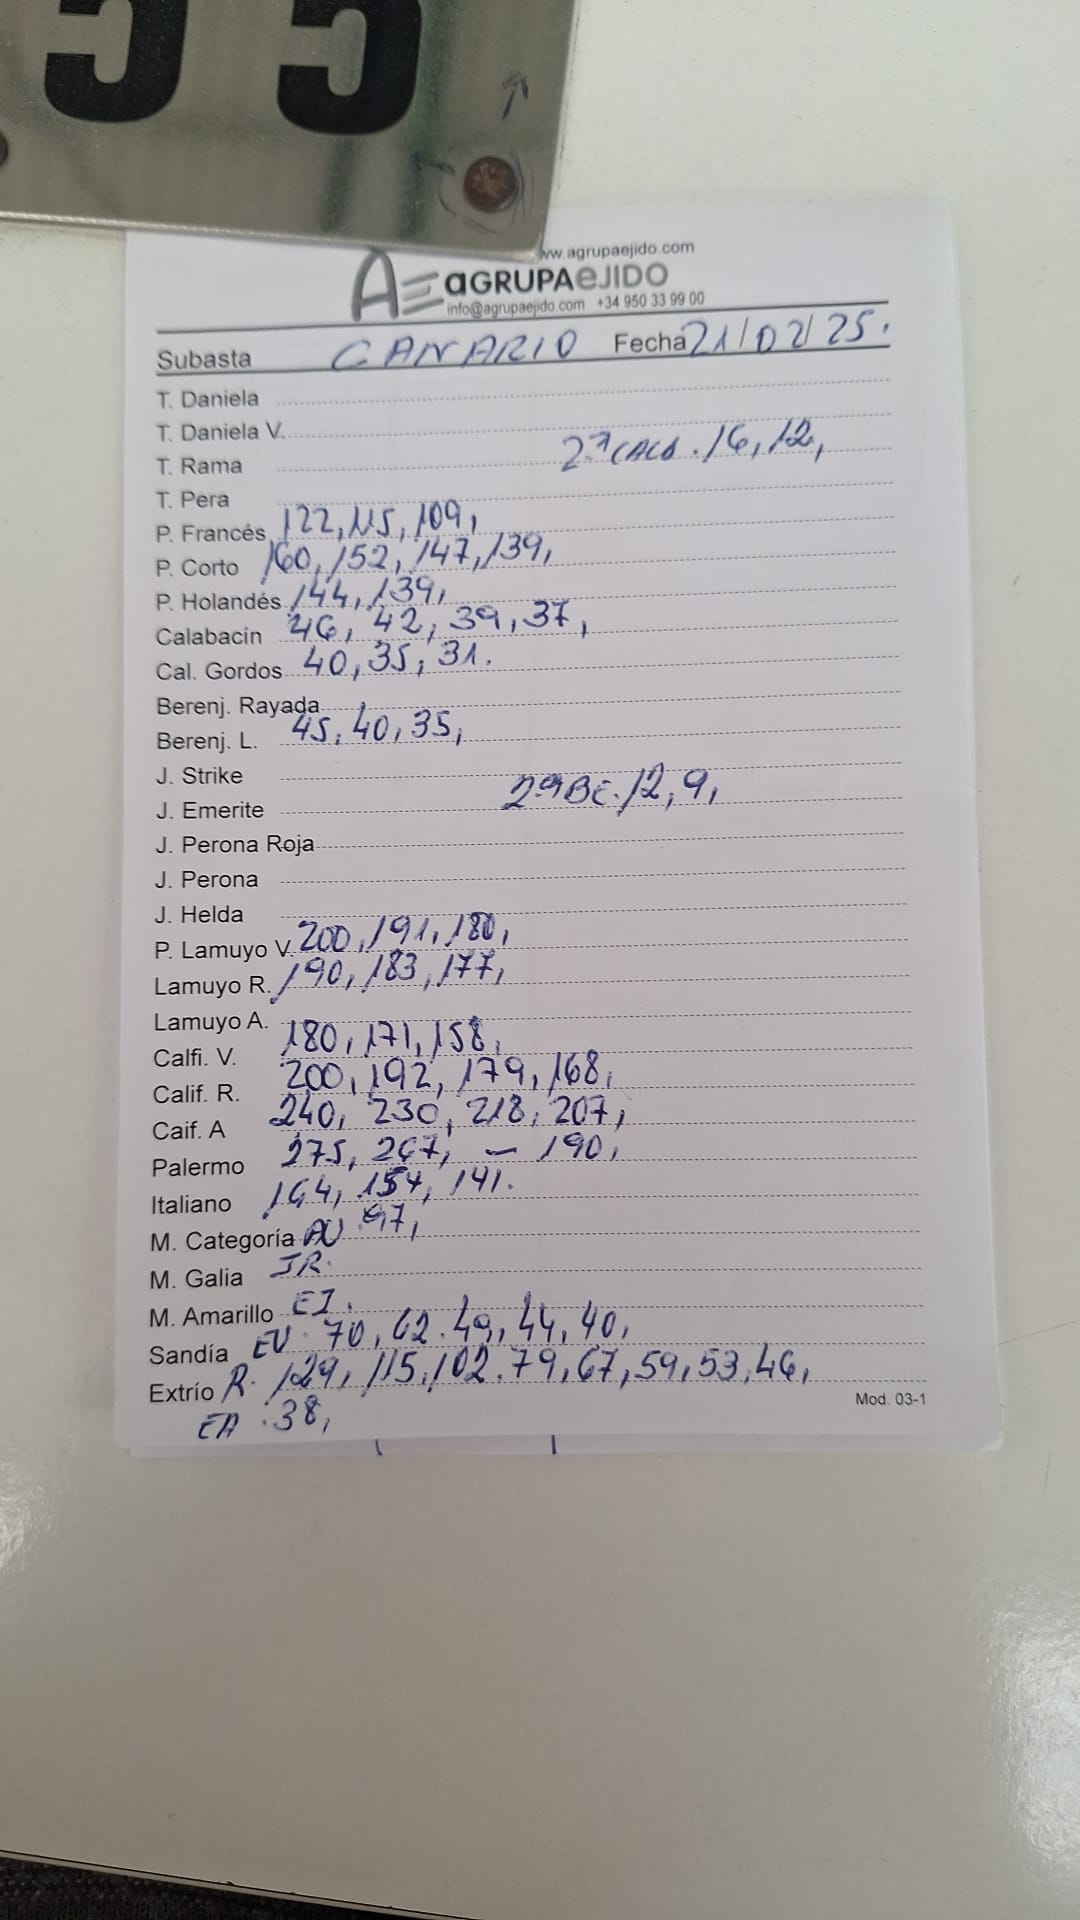 55
ww.agrupaejido.com
AE aGRUPAeJIDO
info@agrupaejido.com +34 950 33 99 00
Subasta CANARIO Fecha 21/02/25.
T. Daniela
T. Daniela V.
T. Rama 2ª CALA. 16, 12,
T. Pera
P. Francés 122, 115, 109,
P. Corto 160, 152, 147, 139,
P. Holandés 144, 139,
Calabacín 46, 42, 39, 37,
Cal. Gordos 40, 35, 31.
Berenj. Rayada
Berenj. L. 45, 40, 35,
J. Strike
J. Emerite 2ª BE. 12, 9,
J. Perona Roja
J. Perona
J. Helda
P. Lamuyo V. 200, 191, 180,
Lamuyo R. 190, 183, 177,
Lamuyo A.
Calfi. V. 180, 171, 158,
Calif. R. 200, 192, 179, 168,
Caif. A 240, 230, 218, 207,
Palermo 275, 267, — 190,
Italiano 164, 154, 141.
M. Categoría AV 97,
M. Galia JR.
M. Amarillo EI.
Sandía EV. 70, 62. 49, 44, 40,
Extrío R. 129, 115, 102. 79, 67, 59, 53, 46,
EA. 38,
Mod. 03-1